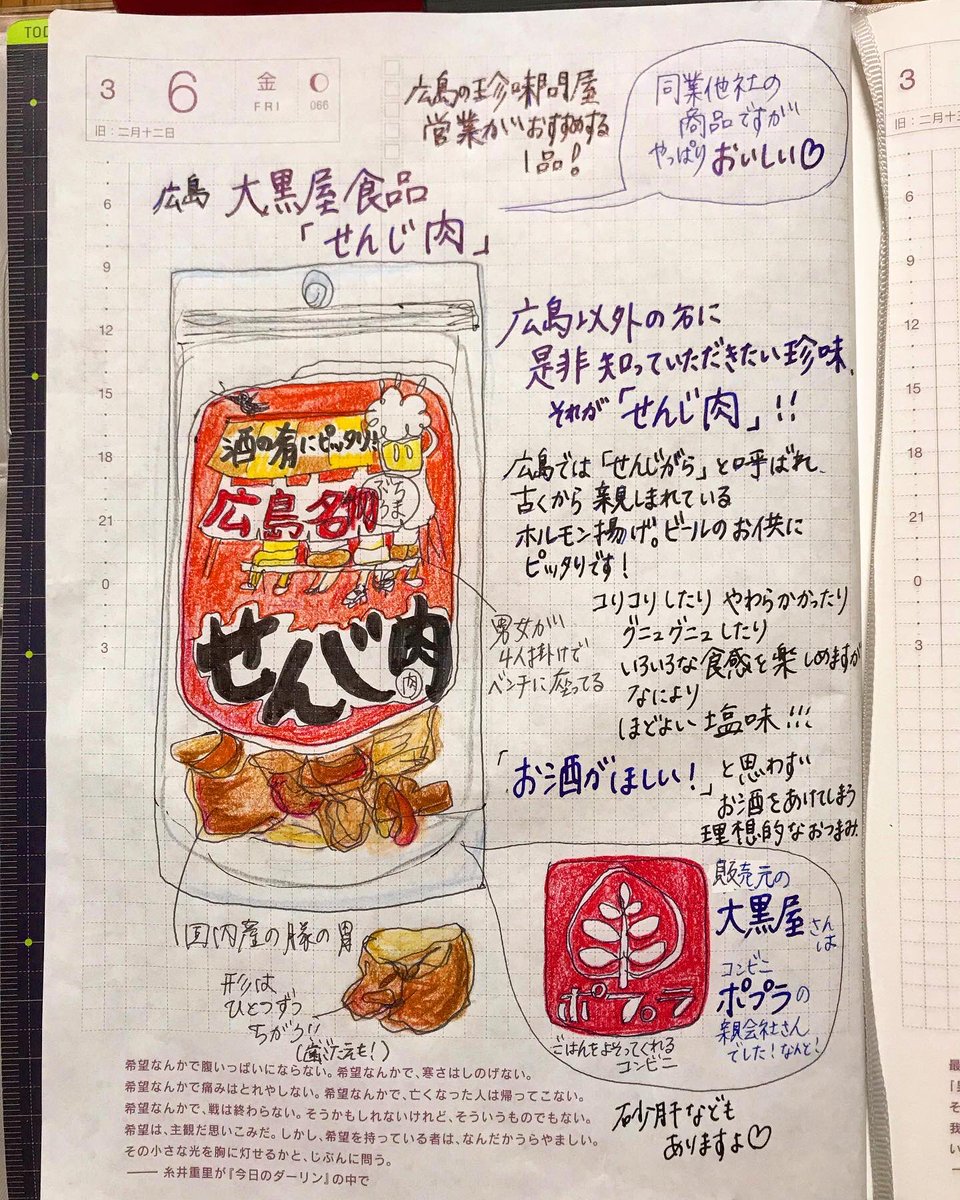 TOD
3 6 金 FRI 066
旧：二月十二日
広島の珍味問屋
営業がおすすめする
1品!
同業他社の
商品ですが
やっぱりおいしい♡
広島 大黒屋食品
「せんじ肉」
6
9
12
15
18
21
0
3
酒の肴にピッタリ!
広島名物
ぶち
うま
せんじ肉
肉
広島以外の方に
是非知っていただきたい珍味、
それが「せんじ肉」!!
広島では「せんじがら」と呼ばれ、
古くから親しまれている
ホルモン揚げ。ビールのお供に
ピッタリです!
コリコリしたり やわらかかったり
グニュグニュしたり
いろいろな食感を楽しめますが
なにより
ほどよい塩味!!!
男女が
4人掛けで
ベンチに座ってる
「お酒がほしい!」と思わず
お酒をあけてしまう
理想的なおつまみ
国内産の豚の胃
形は
ひとつずつ
ちがう!!
(歯ごたえも!)
ポプラ
ごはんをよそってくれる
コンビニ
販売元の
大黒屋さん
は
コンビニ
ポプラの
親会社さん
でした!なんと!
砂肝なども
ありますよ♡
希望なんかで腹いっぱいにならない。希望なんかで、寒さはしのげない。
希望なんかで痛みはとれやしない。希望なんかで、亡くなった人は帰ってこない。
希望なんかで、戦は終わらない。そうかもしれないけれど、そういうものでもない。
希望は、主観だ思いこみだ。しかし、希望を持っている者は、なんだかうらやましい。
その小さな光を胸に灯せるかと、じぶんに問う。
―― 糸井重里が『今日のダーリン』の中で
3
旧：二月十三
6
9
12
15
18
21
0
3